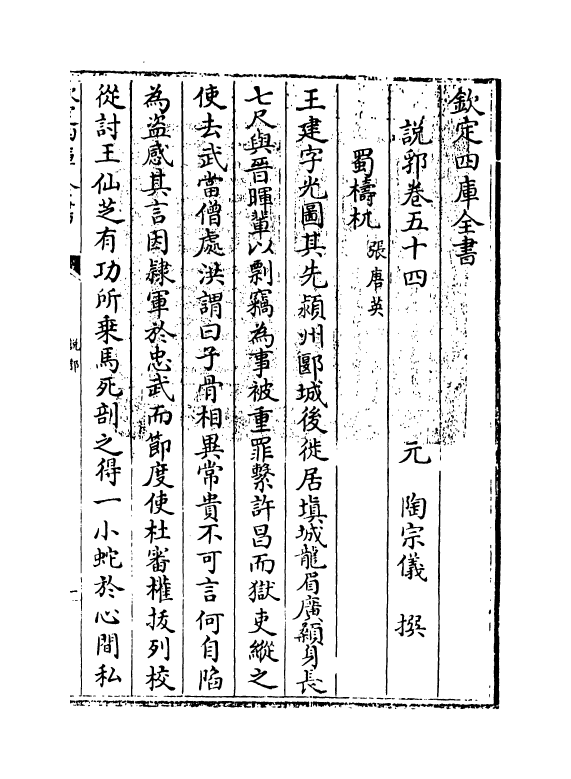 欽定四庫全書
說郛卷五十四　元　陶宗儀　撰
蜀檮杌 張唐英
王建字光圖其先潁州郾城後徙居填城龍眉廣顙身長
七尺與晉暉輩以剽竊為事被重罪繫許昌而獄吏縱之
使去武當僧處洪謂曰子骨相異常貴不可言何自陷
為盜感其言因隸軍於忠武而節度使杜審權拔列校
從討王仙芝有功所乘馬死剖之得一小蛇於心間私
說郛
一